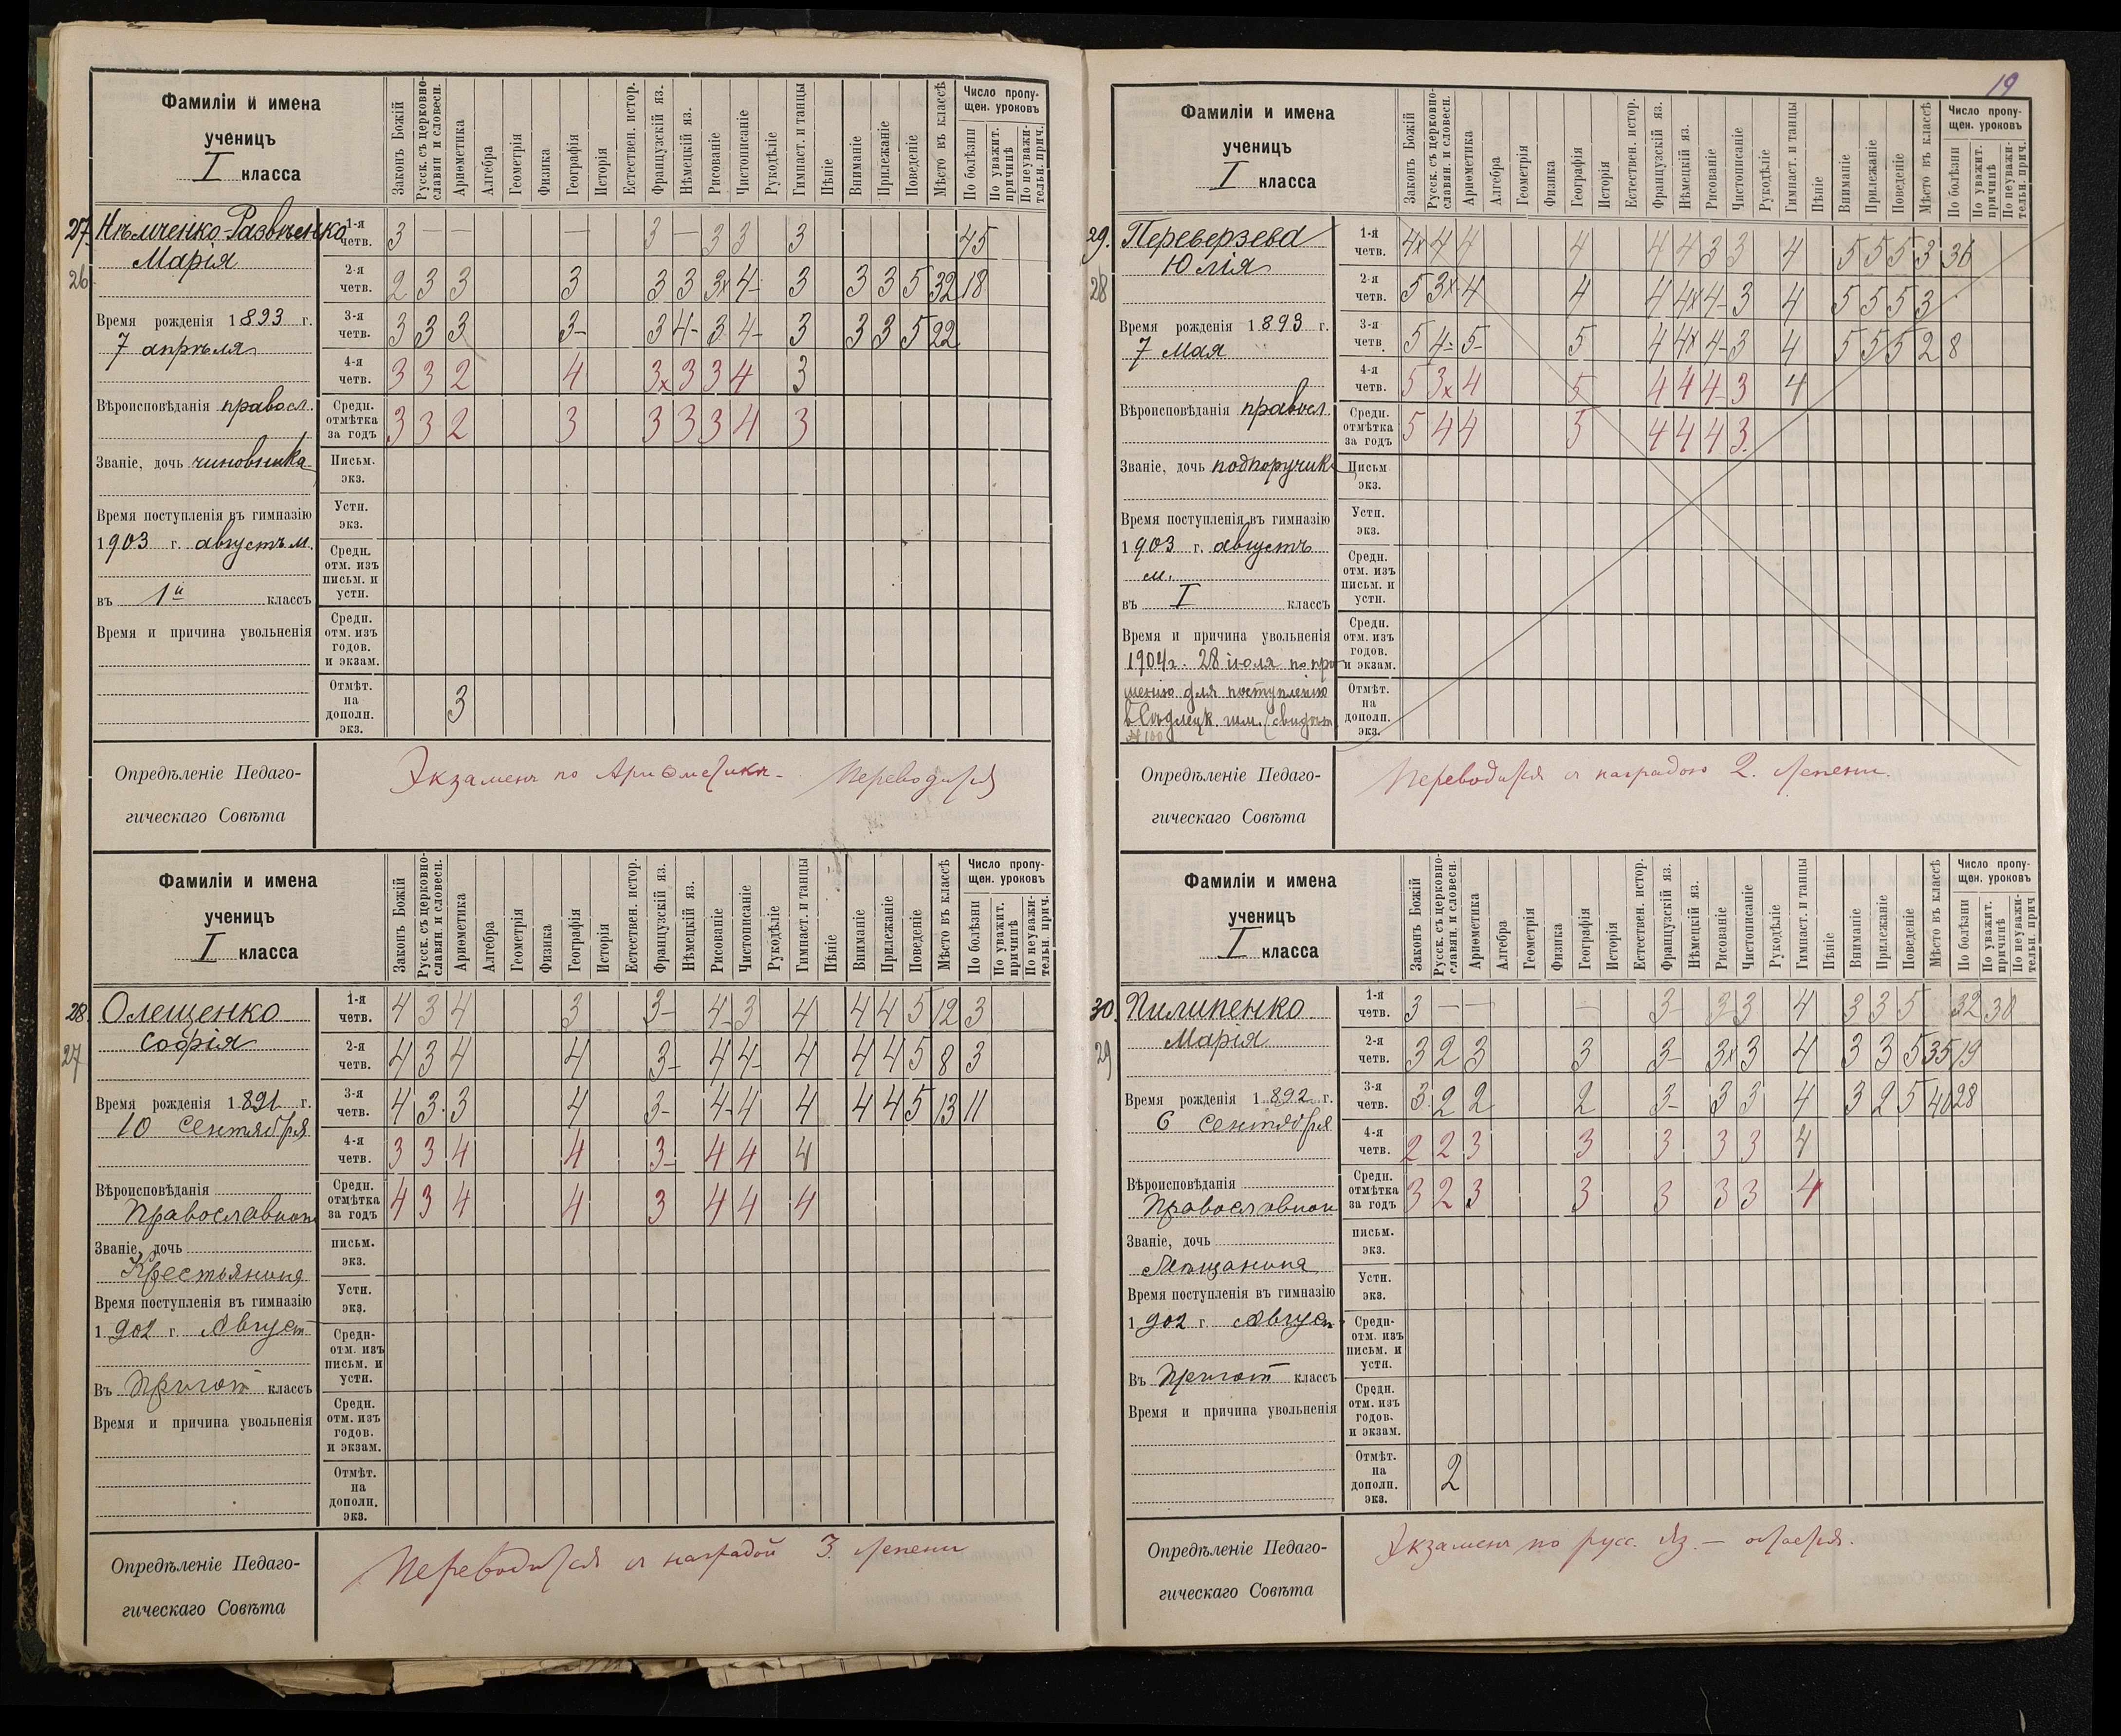 19
Фамиліи и имена
ученицъ
I класса
Законъ Божій
Русск. съ церковно-
славян. и словесн.
Ариѳметика
Алгебра
Геометрія
Физика
Географія
Исторія
Естествен. истор.
Французскій яз.
Нѣмецкій яз.
Рисованіе
Чистописаніе
Рукодѣліе
Гимнаст. и танцы
Пѣніе
Вниманіе
Прилежаніе
Поведеніе
Мѣсто въ классѣ
Число пропу-
щен. уроковъ
По болѣзни
По уважит.
причинѣ
По неуважи-
тельн. прич.
27. Нѣмченко-Развѣенко
Марія
26
Время рожденія 1893 г.
7 апрѣля
Вѣроисповѣданія правосл.
Званіе, дочь чиновника
Время поступленія въ гимназію
1903 г. августъ м.
въ 1й классъ
Время и причина увольненія
1-я четв. 3 — — — 3 — 3 3 3 45
2-я четв. 2 3 3 3 3 3 3x 4- 3 3 3 5 32 18
3-я четв. 3 3 3 3- 3 4- 3 4- 3 3 3 5 22
4-я четв. 3 3 2 4 3x 3 3 4 3
Средн. отмѣтка за годъ 3 3 2 3 3 3 3 4 3
Письм. экз.
Устн. экз.
Средн. отм. изъ письм. и устн.
Средн. отм. изъ годов. и экзам.
Отмѣт. на дополн. экз. 3
Опредѣленіе Педаго-
гическаго Совѣта
Экзаменъ по Ариѳметикѣ - Переводится
Фамиліи и имена
ученицъ
I класса
Законъ Божій
Русск. съ церковно-
славян. и словесн.
Ариѳметика
Алгебра
Геометрія
Физика
Географія
Исторія
Естествен. истор.
Французскій яз.
Нѣмецкій яз.
Рисованіе
Чистописаніе
Рукодѣліе
Гимнаст. и танцы
Пѣніе
Вниманіе
Прилежаніе
Поведеніе
Мѣсто въ классѣ
Число пропу-
щен. уроковъ
По болѣзни
По уважит.
причинѣ
По неуважи-
тельн. прич.
28. Олещенко
Софія
27
Время рожденія 1891 г.
10 Сентября
Вѣроисповѣданія
Православнаго
Званіе, дочь
Крестьянина
Время поступленія въ гимназію
1902 г. Август
Въ Пригот классъ
Время и причина увольненія
1-я четв. 4 3 4 3 3- 4- 3 4 4 4 5 12 3
2-я четв. 4 3 4 4 3- 4 4- 4 4 4 5 8 3
3-я четв. 4 3 3 4 3- 4- 4 4 4 4 5 13 11
4-я четв. 3 3 4 4 3- 4 4 4
Средн. отмѣтка за годъ 4 3 4 4 3 4 4 4
письм. экз.
Устн. экз.
Средн- отм. изъ письм. и устн.
Средн. отм. изъ годов. и экзам.
Отмѣт. на дополн. экз.
Опредѣленіе Педаго-
гическаго Совѣта
Переводится съ наградой 3 степени
Фамиліи и имена
ученицъ
I класса
Законъ Божій
Русск. съ церковно-
славян. и словесн.
Ариѳметика
Алгебра
Геометрія
Физика
Географія
Исторія
Естествен. истор.
Французскій яз.
Нѣмецкій яз.
Рисованіе
Чистописаніе
Рукодѣліе
Гимнаст. и танцы
Пѣніе
Вниманіе
Прилежаніе
Поведеніе
Мѣсто въ классѣ
Число пропу-
щен. уроковъ
По болѣзни
По уважит.
причинѣ
По неуважи-
тельн. прич.
29. Переверзева
Юлія
28
Время рожденія 1893 г.
7 Мая
Вѣроисповѣданія правосл.
Званіе, дочь подпоручика
Время поступленія въ гимназію
1903 г. августъ
м.
въ I классъ
Время и причина увольненія
1904 г. 28 іюля по про
шенію для поступленія
в Сѣдлецк. гим. (свидѣт
№ 100
1-я четв. 4x 4 4 4 4 4 3 3 4 5 5 5 3 36
2-я четв. 5 3x 4 4 4 4x 4- 3 4 5 5 5 3
3-я четв. 5 4- 5- 5 4 4x 4- 3 4 5 5 5 2 8
4-я четв. 5 3x 4 5 4 4 4- 3 4
Средн. отмѣтка за годъ 5 4 4 5 4 4 4 3
Письм экз.
Устн. экз.
Средн. отм. изъ письм. и устн.
Средн. отм. изъ годов. и экзам.
Отмѣт. на дополн. экз.
Опредѣленіе Педаго-
гическаго Совѣта
Переводится съ наградою 2. степени.
Фамиліи и имена
ученицъ
I класса
Законъ Божій
Русск. съ церковно-
славян. и словесн.
Ариѳметика
Алгебра
Геометрія
Физика
Географія
Исторія
Естествен. истор.
Французскій яз.
Нѣмецкій яз.
Рисованіе
Чистописаніе
Рукодѣліе
Гимнаст. и танцы
Пѣніе
Вниманіе
Прилежаніе
Поведеніе
Мѣсто въ классѣ
Число пропу-
щен. уроковъ
По болѣзни
По уважит.
причинѣ
По неуважи-
тельн. прич
30. Пилипенко
Марія
29
Время рожденія 1892 г.
6 Сентября
Вѣроисповѣданія
Православнаго
Званіе, дочь
Мѣщанина
Время поступленія въ гимназію
1902 г. Август
Въ Пригот классъ
Время и причина увольненія
1-я четв. 3 — — — 3- 3 3 4 3 3 5 32 30
2-я четв. 3 2 3 3 3- 3x 3 4 3 3 5 35 19
3-я четв. 3. 2 2 2 3- 3 3 4 3 2 5 40 28
4-я четв. 2 2 3 3 3 3 3 4
Средн. отмѣтка за годъ 3 2 3 3 3 3 3 4
письм. экз.
Устн. экз.
Средн- отм. изъ письм. и устн.
Средн. отм. изъ годов. и экзам.
Отмѣт. на дополн. экз. 2
Опредѣленіе Педаго-
гическаго Совѣта
Экзаменъ по русс. яз. — остается.